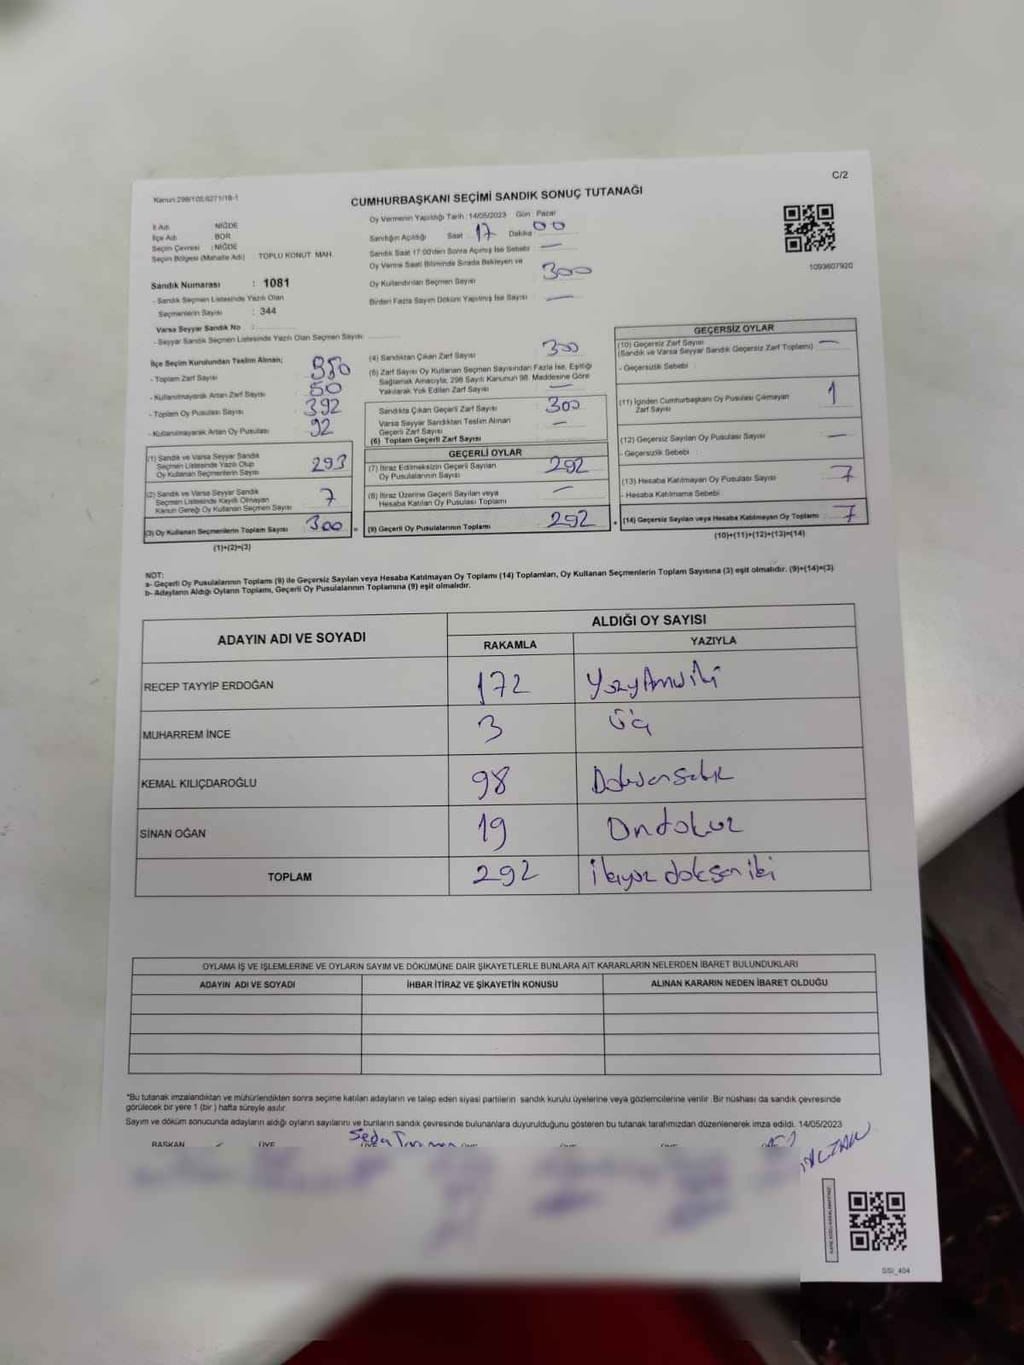 C/2
Kanun:298/105,6271/18-1
CUMHURBAŞKANI SEÇİMİ SANDIK SONUÇ TUTANAĞI
İl Adı : NİĞDE
İlçe Adı : BOR
Seçim Çevresi : NİĞDE
Seçim Bölgesi (Mahalle Adı) : TOPLU KONUT MAH.
Oy Vermenin Yapıldığı Tarih : 14/05/2023 Gün : Pazar
Sandığın Açıldığı Saat 17 Dakika 00
Sandık Saat 17:00'den Sonra Açılmış İse Sebebi —
Oy Verme Saati Bitiminde Sırada Bekleyen ve
Oy Kullandırılan Seçmen Sayısı 300
Birden Fazla Sayım Döküm Yapılmış İse Sayısı —
1093607920
Sandık Numarası : 1081
- Sandık Seçmen Listesinde Yazılı Olan
Seçmenlerin Sayısı : 344
Varsa Seyyar Sandık No :
- Seyyar Sandık Seçmen Listesinde Yazılı Olan Seçmen Sayısı :
İlçe Seçim Kurulundan Teslim Alınan;
- Toplam Zarf Sayısı 350
- Kullanılmayarak Artan Zarf Sayısı 50
- Toplam Oy Pusulası Sayısı 392
- Kullanılmayarak Artan Oy Pusulası 92
(1) Sandık ve Varsa Seyyar Sandık
Seçmen Listesinde Yazılı Olup
Oy Kullanan Seçmenlerin Sayısı 293
(2) Sandık ve Varsa Seyyar Sandık
Seçmen Listesinde Kayıtlı Olmayan
Kanun Gereği Oy Kullanan Seçmen Sayısı 7
(3) Oy Kullanan Seçmenlerin Toplam Sayısı 300
(1)+(2)=(3)
(4) Sandıktan Çıkan Zarf Sayısı 300
(5) Zarf Sayısı Oy Kullanan Seçmen Sayısından Fazla İse, Eşitliği
Sağlamak Amacıyla, 298 Sayılı Kanunun 98. Maddesine Göre
Yakılarak Yok Edilen Zarf Sayısı —
Sandıkta Çıkan Geçerli Zarf Sayısı 300
Varsa Seyyar Sandıktan Teslim Alınan
Geçerli Zarf Sayısı —
(6) Toplam Geçerli Zarf Sayısı
GEÇERLİ OYLAR
(7) İtiraz Edilmeksizin Geçerli Sayılan
Oy Pusulalarının Sayısı 292
(8) İtiraz Üzerine Geçerli Sayılan veya
Hesaba Katılan Oy Pusulası Toplamı —
= (9) Geçerli Oy Pusulalarının Toplamı 292
GEÇERSİZ OYLAR
(10) Geçersiz Zarf Sayısı
(Sandık ve Varsa Seyyar Sandık Geçersiz Zarf Toplamı) —
- Geçersizlik Sebebi :
(11) İçinden Cumhurbaşkanı Oy Pusulası Çıkmayan
Zarf Sayısı 1
(12) Geçersiz Sayılan Oy Pusulası Sayısı —
- Geçersizlik Sebebi :
(13) Hesaba Katılmayan Oy Pusulası Sayısı 7
- Hesaba Katılmama Sebebi :
+ (14) Geçersiz Sayılan veya Hesaba Katılmayan Oy Toplamı 7
(10)+(11)+(12)+(13)=(14)
NOT:
a- Geçerli Oy Pusulalarının Toplamı (9) ile Geçersiz Sayılan veya Hesaba Katılmayan Oy Toplamı (14) Toplamları, Oy Kullanan Seçmenlerin Toplam Sayısına (3) eşit olmalıdır. (9)+(14)=(3)
b- Adayların Aldığı Oyların Toplamı, Geçerli Oy Pusulalarının Toplamına (9) eşit olmalıdır.
ADAYIN ADI VE SOYADI
ALDIĞI OY SAYISI
RAKAMLA YAZIYLA
RECEP TAYYİP ERDOĞAN 172
MUHARREM İNCE 3 üç
KEMAL KILIÇDAROĞLU 98 Doksansekiz
SİNAN OĞAN 19 Ondokuz
TOPLAM 292 ikiyüz doksan iki
OYLAMA İŞ VE İŞLEMLERİNE VE OYLARIN SAYIM VE DÖKÜMÜNE DAİR ŞİKAYETLERLE BUNLARA AİT KARARLARIN NELERDEN İBARET BULUNDUKLARI
ADAYIN ADI VE SOYADI İHBAR İTİRAZ VE ŞİKAYETİN KONUSU ALINAN KARARIN NEDEN İBARET OLDUĞU
*Bu tutanak imzalandıktan ve mühürlendikten sonra seçime katılan adayların ve talep eden siyasi partilerin sandık kurulu üyelerine veya gözlemcilerine verilir. Bir nüshası da sandık çevresinde
görülecek bir yere 1 (bir) hafta süreyle asılır.
Sayım ve döküm sonucunda adayların aldığı oyların sayılarını ve bunların sandık çevresinde bulunanlara duyurulduğunu gösteren bu tutanak tarafımızdan düzenlenerek imza edildi. 14/05/2023
BAŞKAN ÜYE
SSI_404